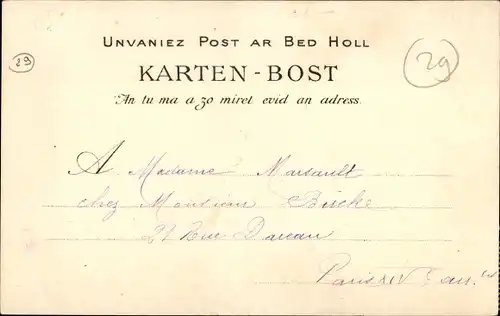 Unvaniez Post ar Bed Holl
29
29
KARTEN-BOST
An tu ma a zo miret evid an adress.
A Madame Marsault
chez Monsieur
21 Rue Dareau
Paris XIV